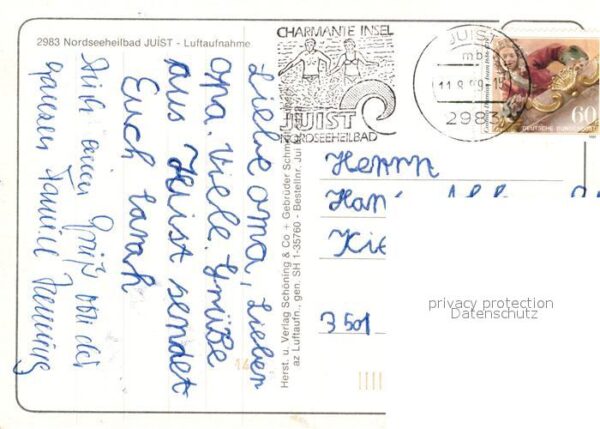 2983 Nordseeheilbad JUIST - Luftaufnahme
CHARMANTE INSEL
JUIST
NORDSEEHEILBAD
JUIST
mb
2983
60
DEUTSCHE BUNDESPOST
Liebe Oma, Lieber
Opa. Viele Grüße
aus Juist sendet
Euch Sarah
einen Gruß von der
ganzen Familie Henning
Herst. u. Verlag Schöning & Co + Gebrüder Schm
az Luftaufn., gen. SH 1-35760 - Bestellnr. Jui
Herrn
3501
privacy protection
Datenschutz